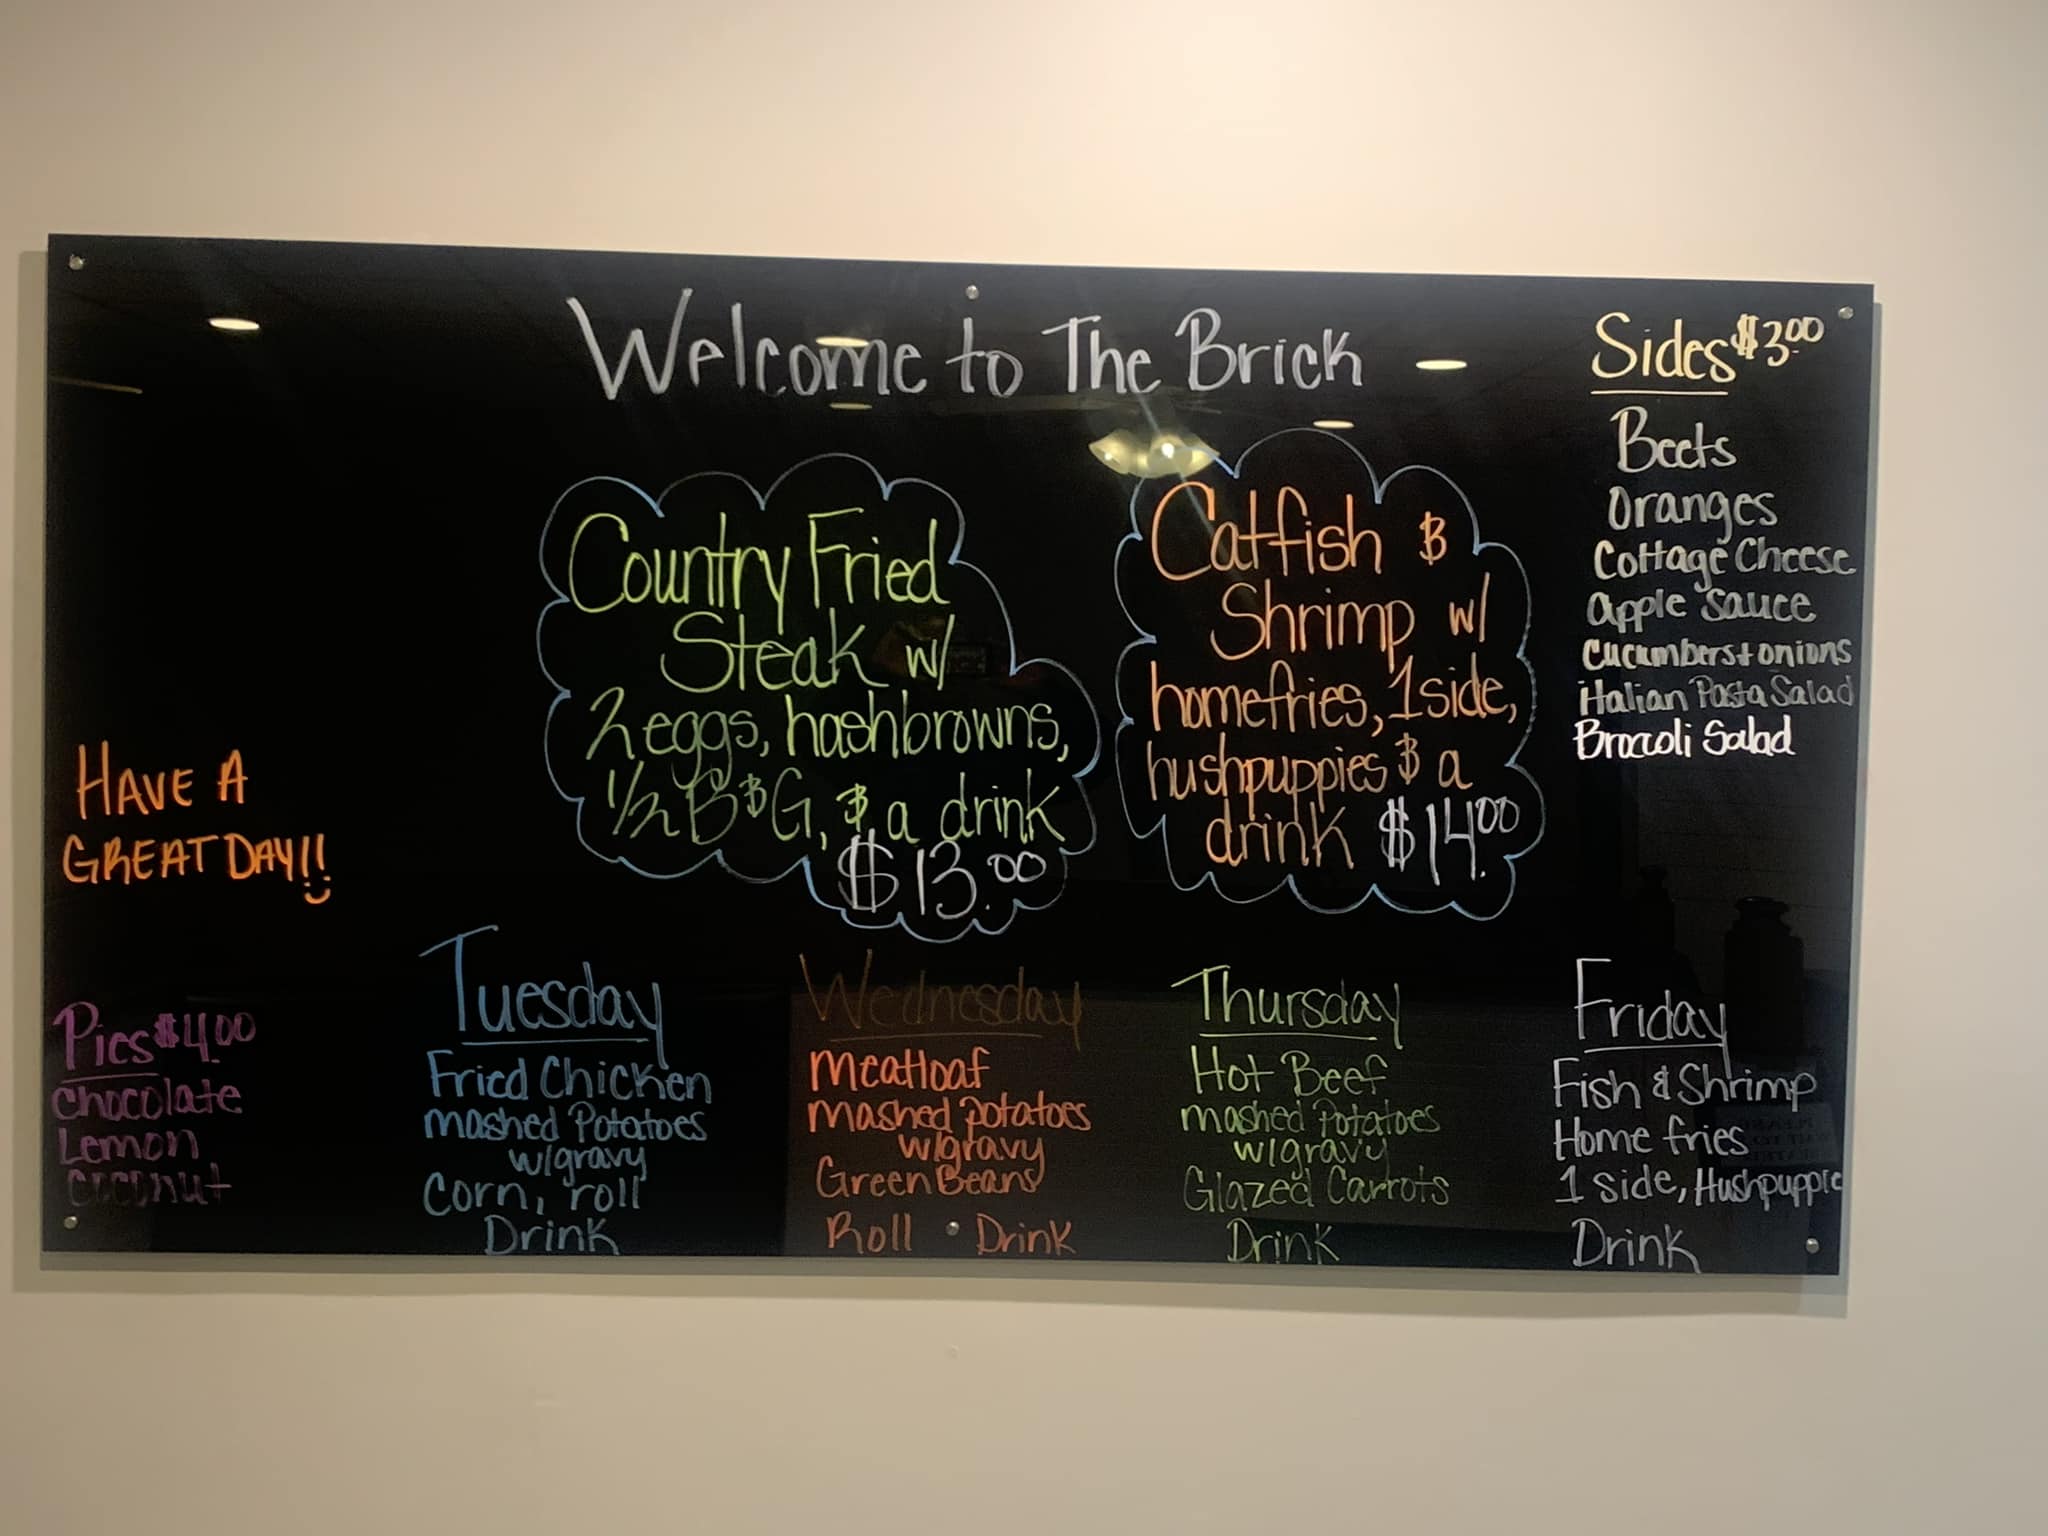 Welcome to The Brick
Country Fried
Steak w/
2 eggs, hashbrowns,
1/2 B & G, & a drink
$13.00
Catfish &
Shrimp w/
homefries, 1 side,
hushpuppies & a
drink $14.00
Sides $3.00
Beets
Oranges
Cottage Cheese
apple sauce
cucumbers + onions
italian Pasta Salad
Broccoli Salad
HAVE A
GREAT DAY!!
Pies $4.00
Chocolate
Lemon
Coconut
Tuesday
Fried Chicken
mashed Potatoes
w/gravy
Corn, roll
Drink
Wednesday
Meatloaf
mashed potatoes
w/gravy
Green Beans
Roll • Drink
Thursday
Hot Beef
mashed Potatoes
w/gravy
Glazed Carrots
Drink
Friday
Fish & Shrimp
Home fries
1 side, Hushpuppie
Drink